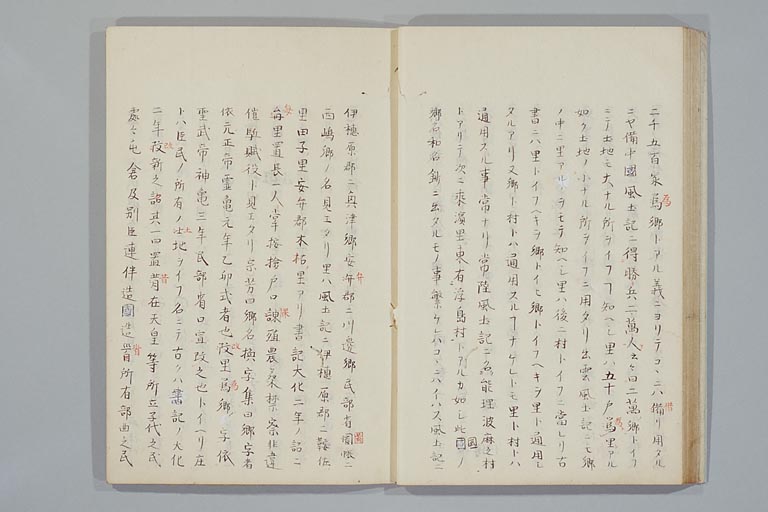 二千五百家為郷トアル義ニヨリテコヽニハ備リ用タル
ニヤ備中國風土記ニ得勝兵二萬人云々曰二萬郷トイフ
ニテ土地モ大ナル所ライフ知ヘシ里ハ五十戸為里アル
如ク土地ノ小ナル所ライフニ用タリ出雲風土記ニモ郷
ノ中ニ里アルラモテ知ヘシ里ハ後ニ村トイフニ當レリ古
書ニハ里トイフヘキヲ郷トイヒ郷トイフヘキヲ里ト通用シ
タルアリ又郷ト村トハ通用スルナケレトモ里ト村トハ
通用スル事常ナリ常陸風土記ニ名能理波麻之村
トアリテ次ニ乘濱里東有浮島村トアルカ如シ此國ノ
郷名和名鈔ニ出タルモノ事繁ケレハコヽニハイハス風土記ニ
伊穗原郡ニ奥津郷安弁郡ニ川邊郷民部省圖帳ニ
西嶋郷ノ名見エタリ里ハ風土記ニ伊穗原郡ニ鞍佐
里田子里安弁郡木枯里アリ書記大化二年ノ詔ニ
毎里置長一人掌按撿戸口課殖農桑禁察非違
催駈賦役ト見エタリ宗芳曰郷名換字集曰郷字者
依元正帝靈亀元年乙卯式者也改里為郷ノ字依
聖武帝神亀三年民部省口宣改之也トイヘリ庄
トハ臣民ノ所有ノ土地ライフ名ニテ古クハ書記ノ大化
二年改新之詔其一曰罷昔在天皇等所立子代之民
處々屯倉及別臣連伴造國造首所有部曲之民